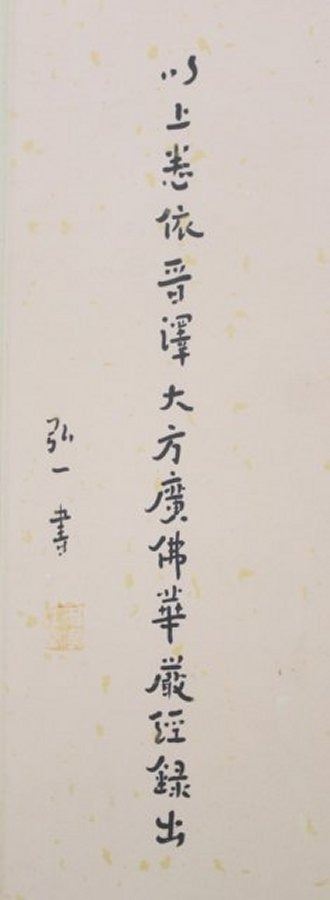 以上悉依晉澤大方廣佛華嚴經錄出
弘一書